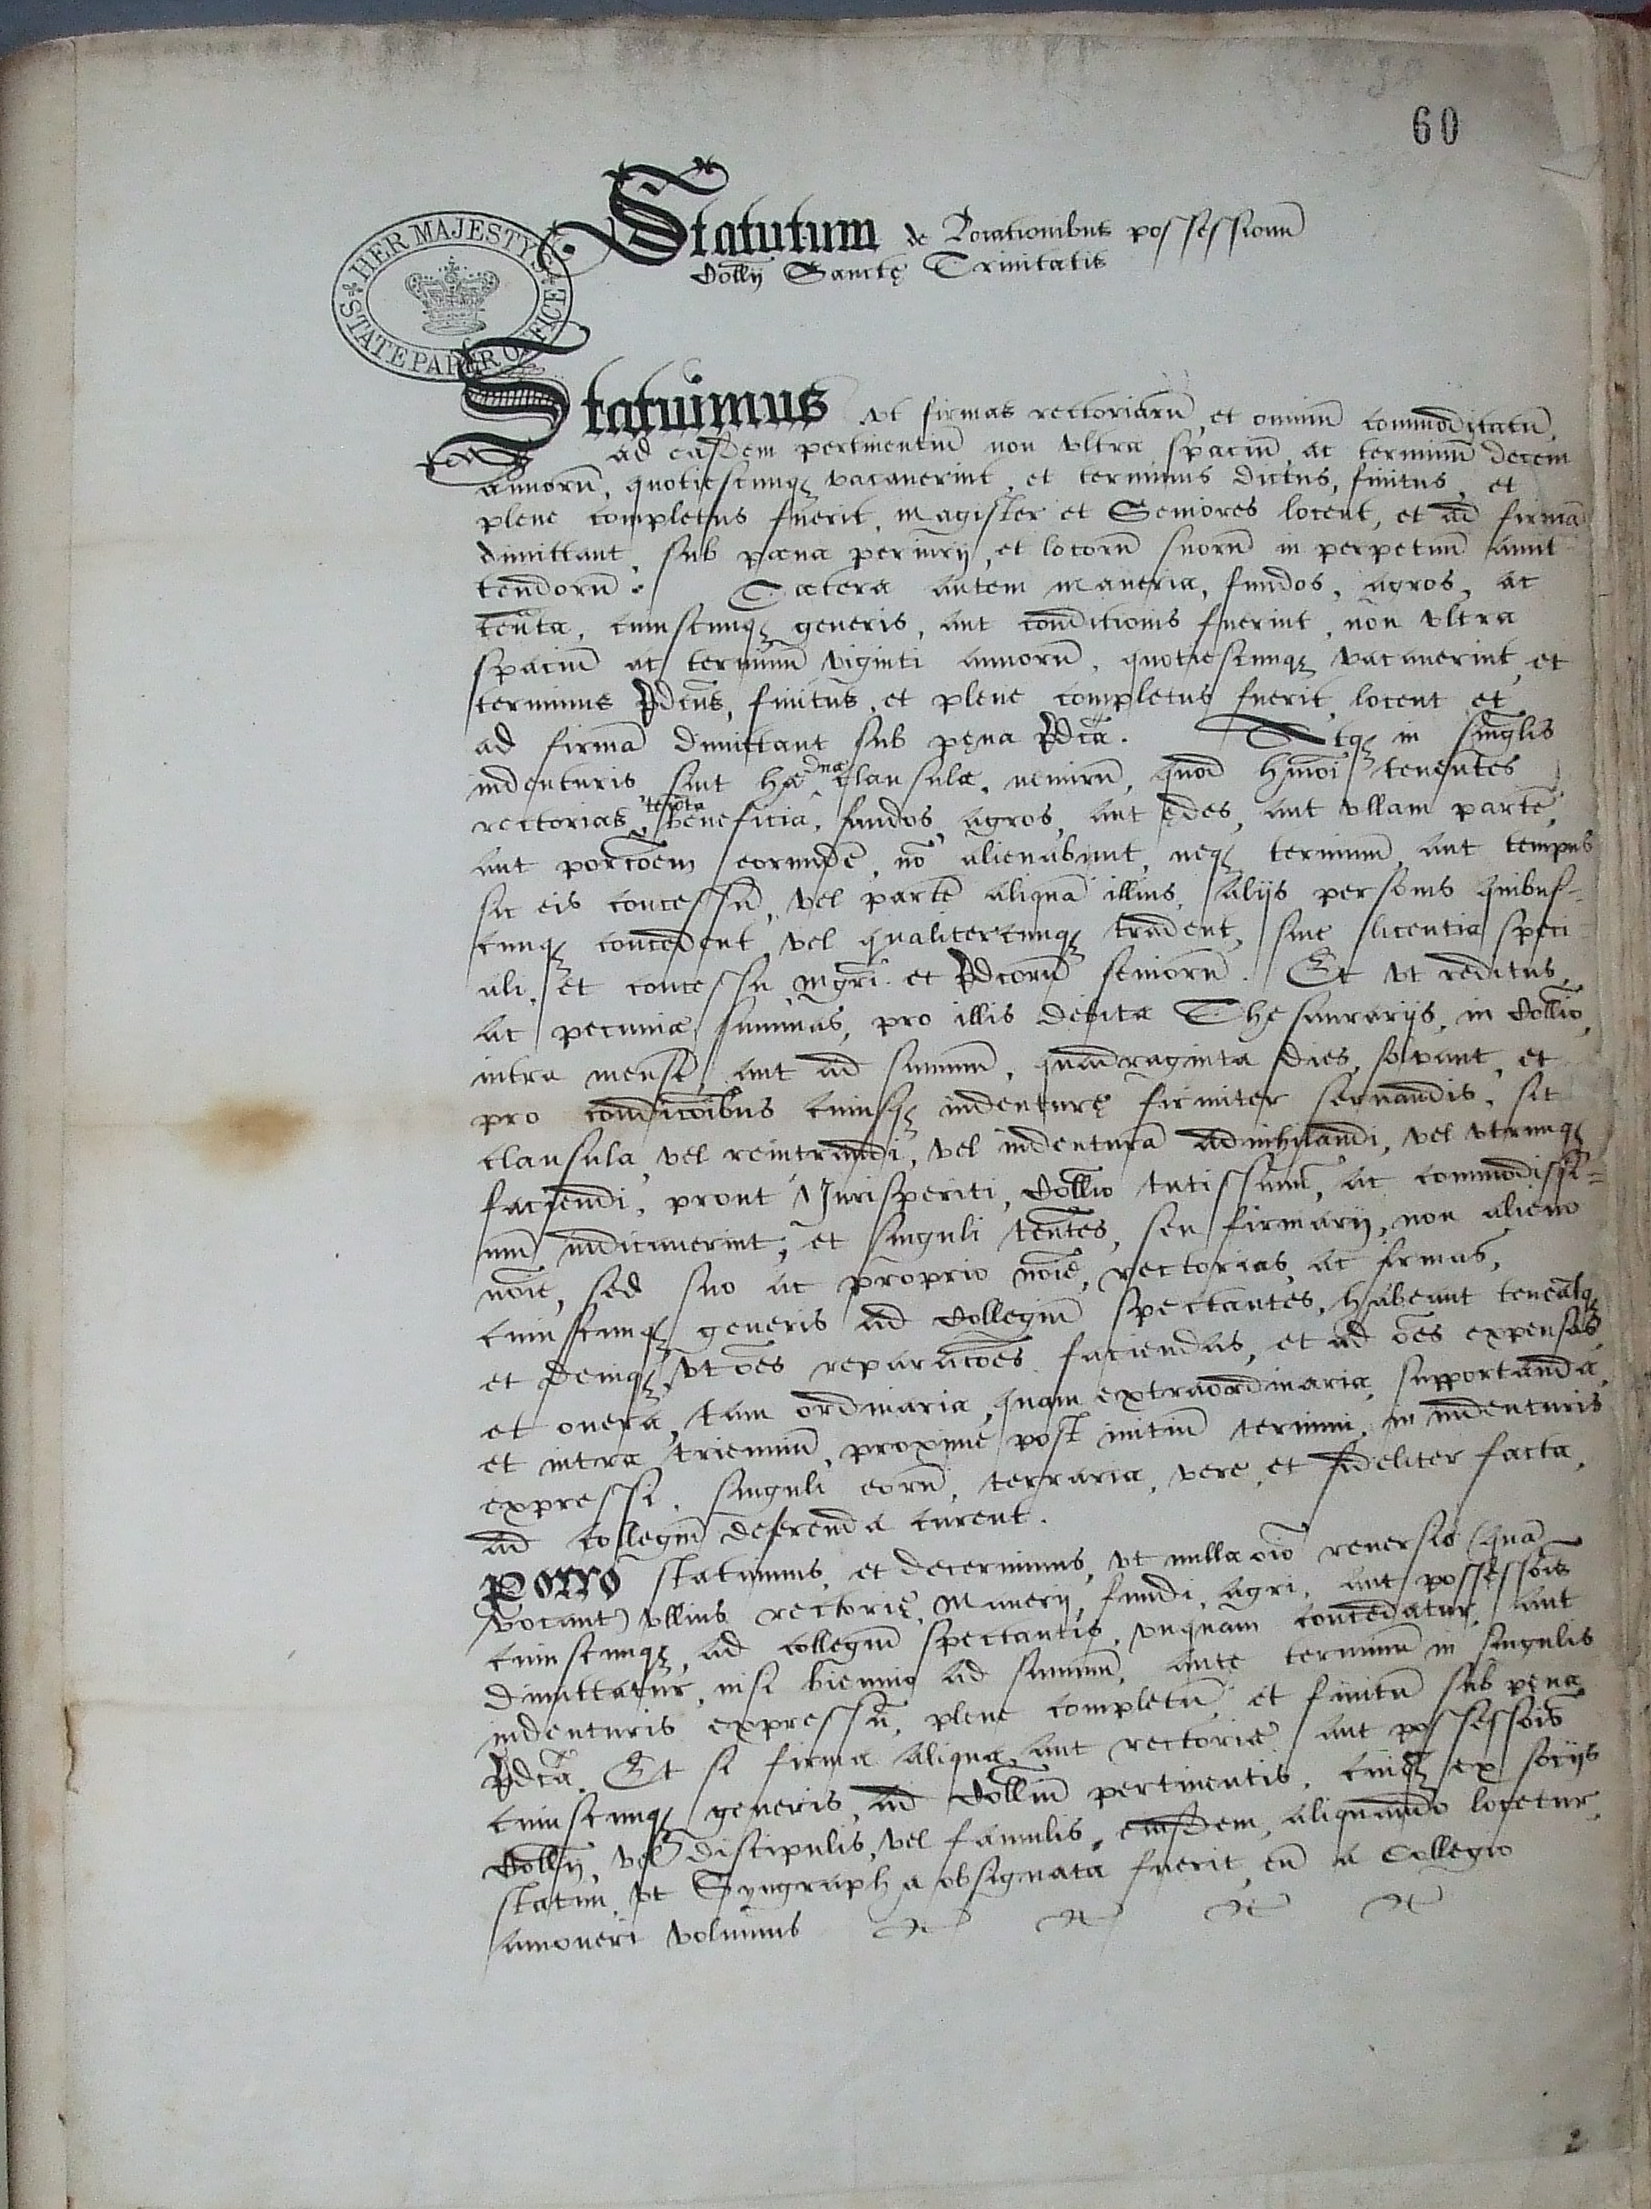 60
Statutum de Locationibus possessionū
Collij Sanctę Trinitatis
HER MAJESTY'S STATE PAPER OFFICE
Statuimus vt firmas rectoriarū, et omniū commoditatū,
ad easdem pertinentiū non vltra spaciū, ac terminū decem
annorū, quotiescunq vacauerint, et terminus dictus, finitus, et
plene completus fuerit, magister et Seniores locent, et ad firmā
dimittant, sub pœna periurij, et locorū suorū in perpetuū amit
tendorū. Cætera autem maneria, fundos, agros, ac
tenta, cuiuscunq generis, aut conditionis fuerint, non vltra
spaciū ac terminū viginti annorū, quotiescunq vacauerint, et
terminus pdcus, finitus, et plene completus fuerit, locent et
ad firmā dimittant sub pęna pdcā. Atq in singlis
indenturis sint hæ duæ clausulæ, nemirū, quod hmoi tenentes
rectorias, tenta beneficia, fundos, agros, aut ędes, aut vllam partē,
aut porcōem eorundē, nō alienabunt, neq terminum, aut tempus
sic eis concessū, vel partē aliquā illius, alijs personis quibus-
cunq concedent, vel qualitercunq tradent, sine licentia speci
ali, et concessu mgri et pdcorū seniorū. Et vt reditus,
ac pecuniæ summas, pro illis debitæ Thesaurarijs, in Collio,
intra mensē, aut ad summū, quadraginta dies, soluant, et
pro condicōibus cuiusq indenturę firmiter seruandis, sit
clausula, vel reintrandi, vel indenturā adnihilandi, vel vtrunq
faciendi, prout Jurisperiti, Collio tutissimū, ac commodissi-
mū iudicauerint, et singuli tentes, seu firmarij, non alieno
noīe, sed suo ac proprio noīe, rectorias, ac firmas,
cuiuscunq generis ad Collegiū spectantes, habeant teneātq
et deniq, vt oēs reparacōes faciendas, et ad oēs expensas,
et onera, tam ordinaria, quam extraordinaria, supportanda,
et intra trienniū, proxime post initiū termini, in indenturis
expressi, singuli eorū, terraria, vere, et fideliter facta,
ad collegiū deferenda curent.
Porro statuimus, et decernimus, vt nulla oīo reuersio (quā
vocant) vllius rectorię, Manerij, fundi, agri, aut possessōis
cuiuscunq, ad collegiū spectantis, vnquam concedatur, aut
dimittatur, nisi biennio ad summū, ante terminū in singulis
indenturis expressū, plene completū, et finitū sub pęna
pdcā. Et si firma aliqua, aut rectoriæ aut possessōis
cuiuscunq generis, ad Colliū pertinentis, cuiq ex socijs
Collij, vel discipulis, vel famulis, eiusdem, aliquando locetur,
statim vt Syngrapha obsignata fuerit, eū a Collegio
amoueri volumus
2